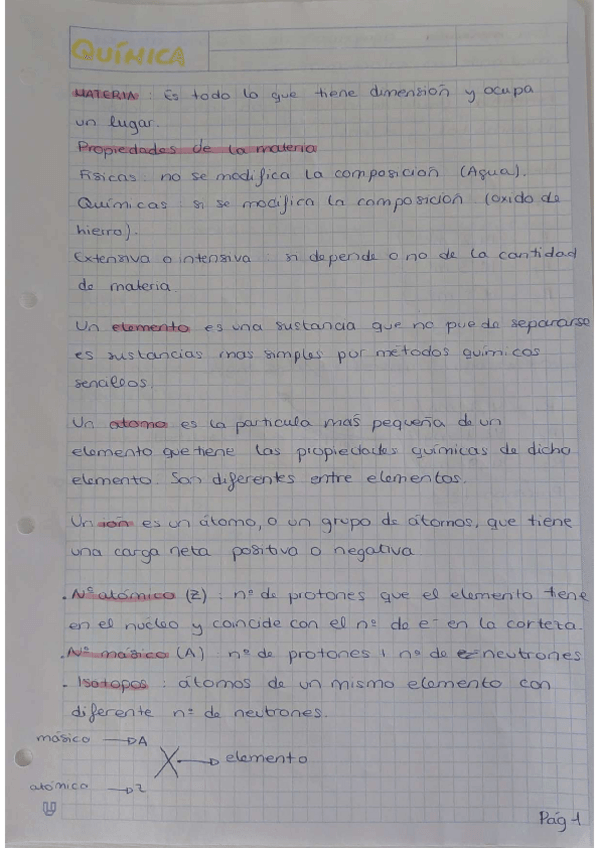 QUÍMICA
MATERIA : Es todo lo que tiene dimensión y ocupa
un lugar.
Propiedades de la materia
Físicas : no se modifica la composición (Agua).
Químicas : si se modifica la composición (oxido de
hierro).
Extensiva o intensiva : si depende o no de la cantidad
de materia.
Un elemento es una sustancia que no puede separarse
es sustancias mas simples por metodos químicos
Un atomo es la particula mas pequeña de un
elemento que tiene las propiedades químicas de dicho
elemento. Son diferentes entre elementos.
Un ión es un átomo, o un grupo de átomos, que tiene
una carga neta positiva o negativa
. Nº atómico (Z) : nº de protones que el elemento tiene
en el nucleo y coincide con el nº de e⁻ en la corteza.
. Nº másico (A) : nº de protones + nº de neutrones
. Isótopos : átomos de un mismo elemento con
diferente nº de neutrones.
másico → A
X → elemento
atómico → Z
Pág 1